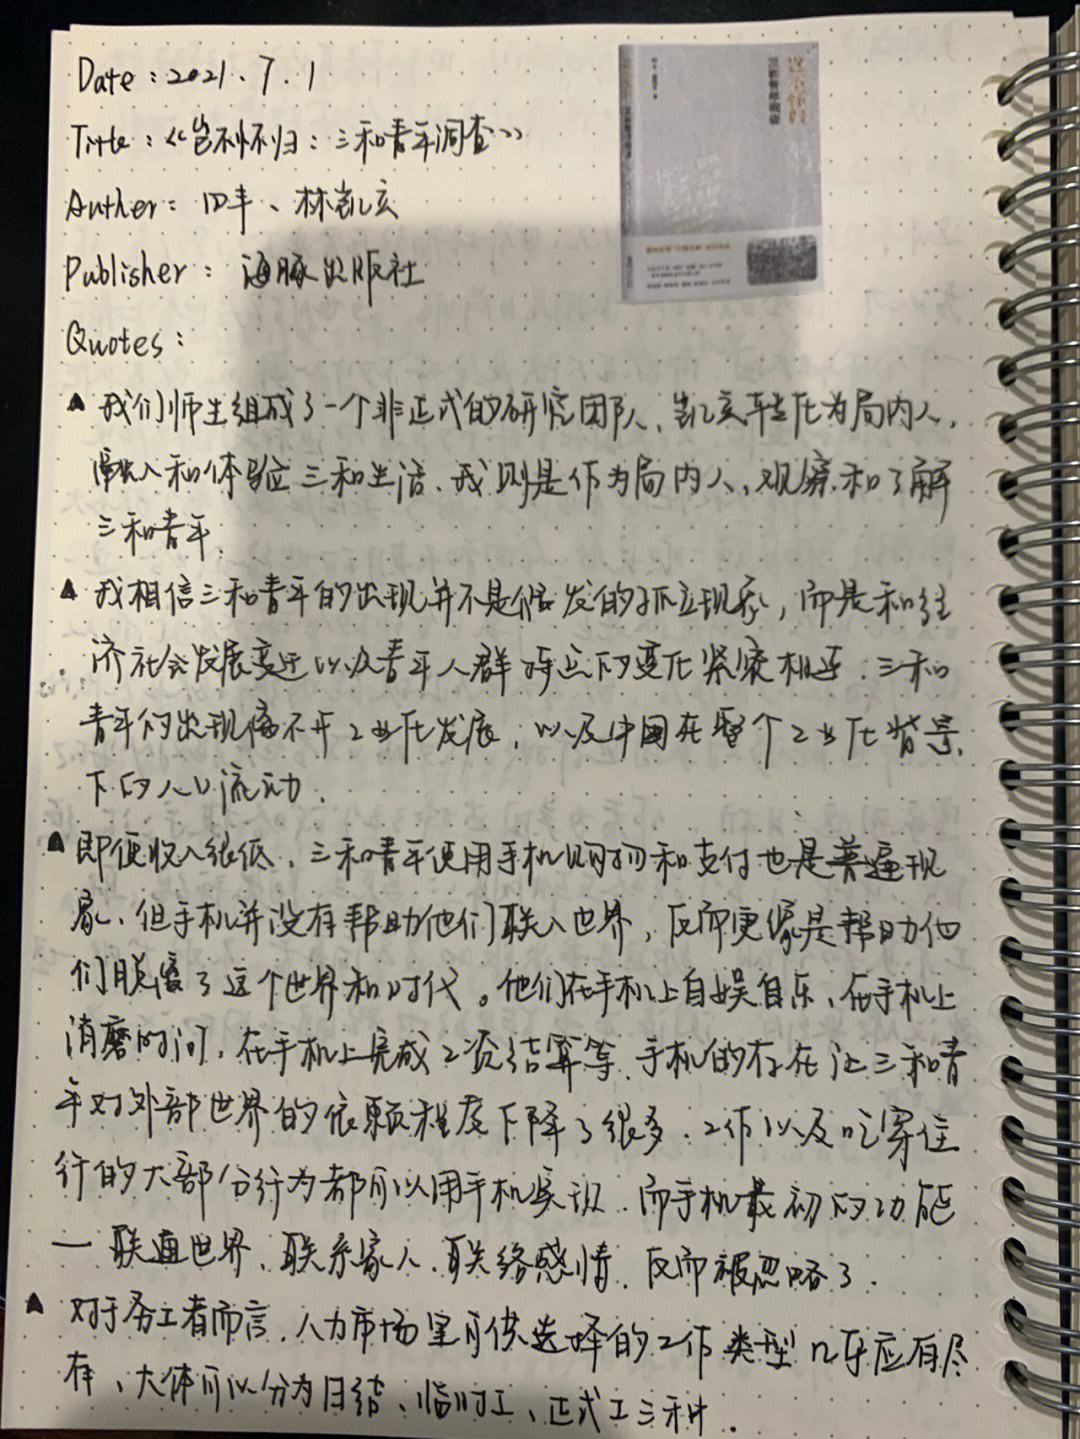 Date：2021.7.1
Title：《岂不怀归：三和青年调查》
Auther：田丰、林凯玄
Publisher：海豚出版社
岂不怀归
三和青年调查
Quotes：
▲ 我们师生组成了一个非正式的研究团队、凯玄转化为局内人，
融入和体验三和生活、我则是作为局内人、观察和了解
三和青年.
▲ 我相信三和青年的出现并不是偶发的孤立现象，而是和经
济社会发展变迁以及青年人群特点的变化紧紧相连.三和
青年的出现离不开工业化发展，以及中国在整个工业化背景
下的人口流动.
▲ 即便收入很低、三和青年使用手机购物和支付也是普遍现
象、但手机并没有帮助他们联入世界，反而更像是帮助他
们脱离了这个世界和时代。他们在手机上自娱自乐、在手机上
消磨时间，在手机上完成工资结算等、手机的存在让三和青
年对外部世界的依赖程度下降了很多.工作以及吃穿住
行的大部分行为都可以用手机实现.而手机最初的功能
— 联通世界、联系家人、联络感情、反而被忽略了.
▲ 对于务工者而言，人力市场里可供选择的工作类型几乎应有尽
有、大体可以分为日结、临时工、正式工三种.